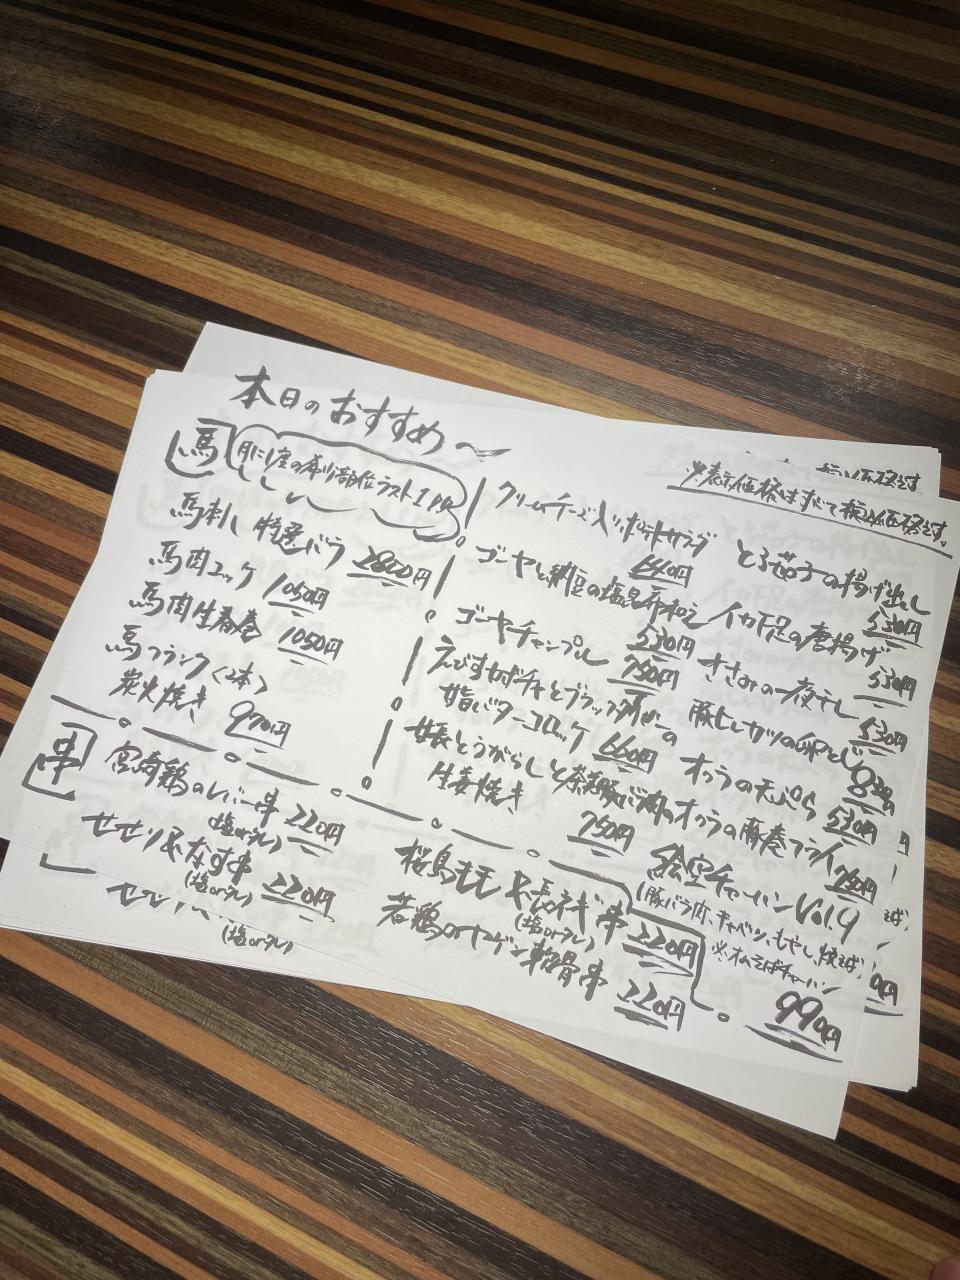 本日のおすすめ〜
※表示価格はすべて税込価格です。
馬
月に1度の希少部位ラスト1
馬刺し 特選バラ 2800円
馬肉ユッケ 1050円
馬肉生春巻 1050円
馬フランク〈2本〉
炭火焼き 970円
クリームチーズ入りポテトサラダ
660円
ゴーヤと納豆の塩昆布和え
530円
ゴーヤチャンプル 750円
えびすかぼちゃとブラック
バターコロッケ 660円
とうがらしと茶美豚バラ肉の
生姜焼き 750円
とろ茄子の揚げ出し
530円
イカ下足の唐揚げ
530円
ささみの一夜干し
530円
豚ヒレカツの卵とじ
オクラの天ぷら
530円
オクラの豚巻フライ
絵空チャーハン Vol.9
(豚バラ肉、キャベツ、もやし、焼そば)
※オムそばチャーハン
990円
串
宮崎鶏のレバー串
(塩orタレ) 220円
せせり&なす串
(塩orタレ) 220円
桜島モモ&長ネギ串
(塩orタレ) 220円
若鶏のヤゲン軟骨串
220円
(塩orタレ)